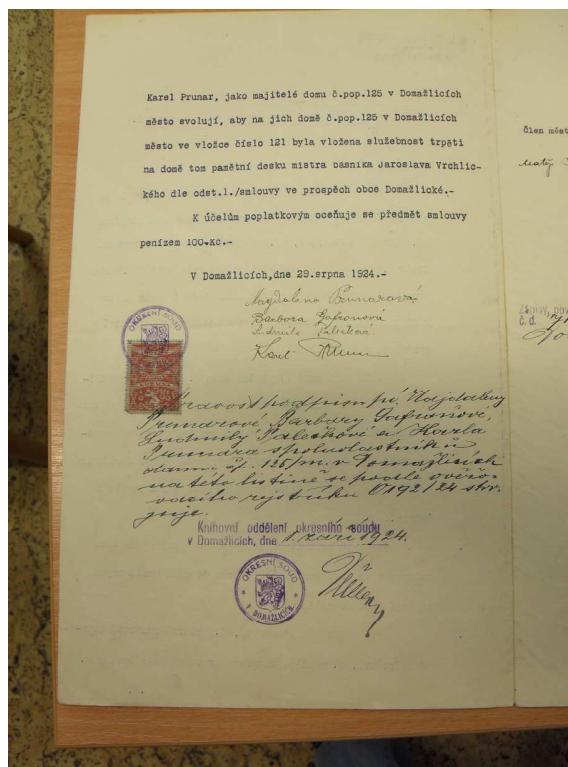 Karel Prunar, jako majitelé domu č.pop.125 v Domažlicích
město svolují, aby na jich domě č.pop.125 v Domažlicích
město ve vložce číslo 121 byla vložena služebnost trpěti
na domě tom pamětní desku mistra básníka Jaroslava Vrchlic-
kého dle odst.1./smlouvy ve prospěch obce Domažlické.-
K účelům poplatkovým oceňuje se předmět smlouvy
penízem 100.Kč.-
V Domažlicích,dne 29.srpna 1924.-
Magdalena Prunarová
Barbora Gafronová
Ludmila
Karel Prunar
OKRESNÍ SOUD
Pravost podpisu pí. Magdaleny
Prunarové, Barbory Gafronové,
Ludmily Palečkové a Karla
Prunara spoluvlastníků
domu čp. 125/m. v Domažlicích
na této listině se podle ověřo-
vacího rejstříku O 192/24 stvr-
zuje.
Knihovní oddělení okresního soudu
v Domažlicích, dne 1. září 1924.
OKRESNÍ SOUD
V DOMAŽLICÍCH
člen měst
č. d.